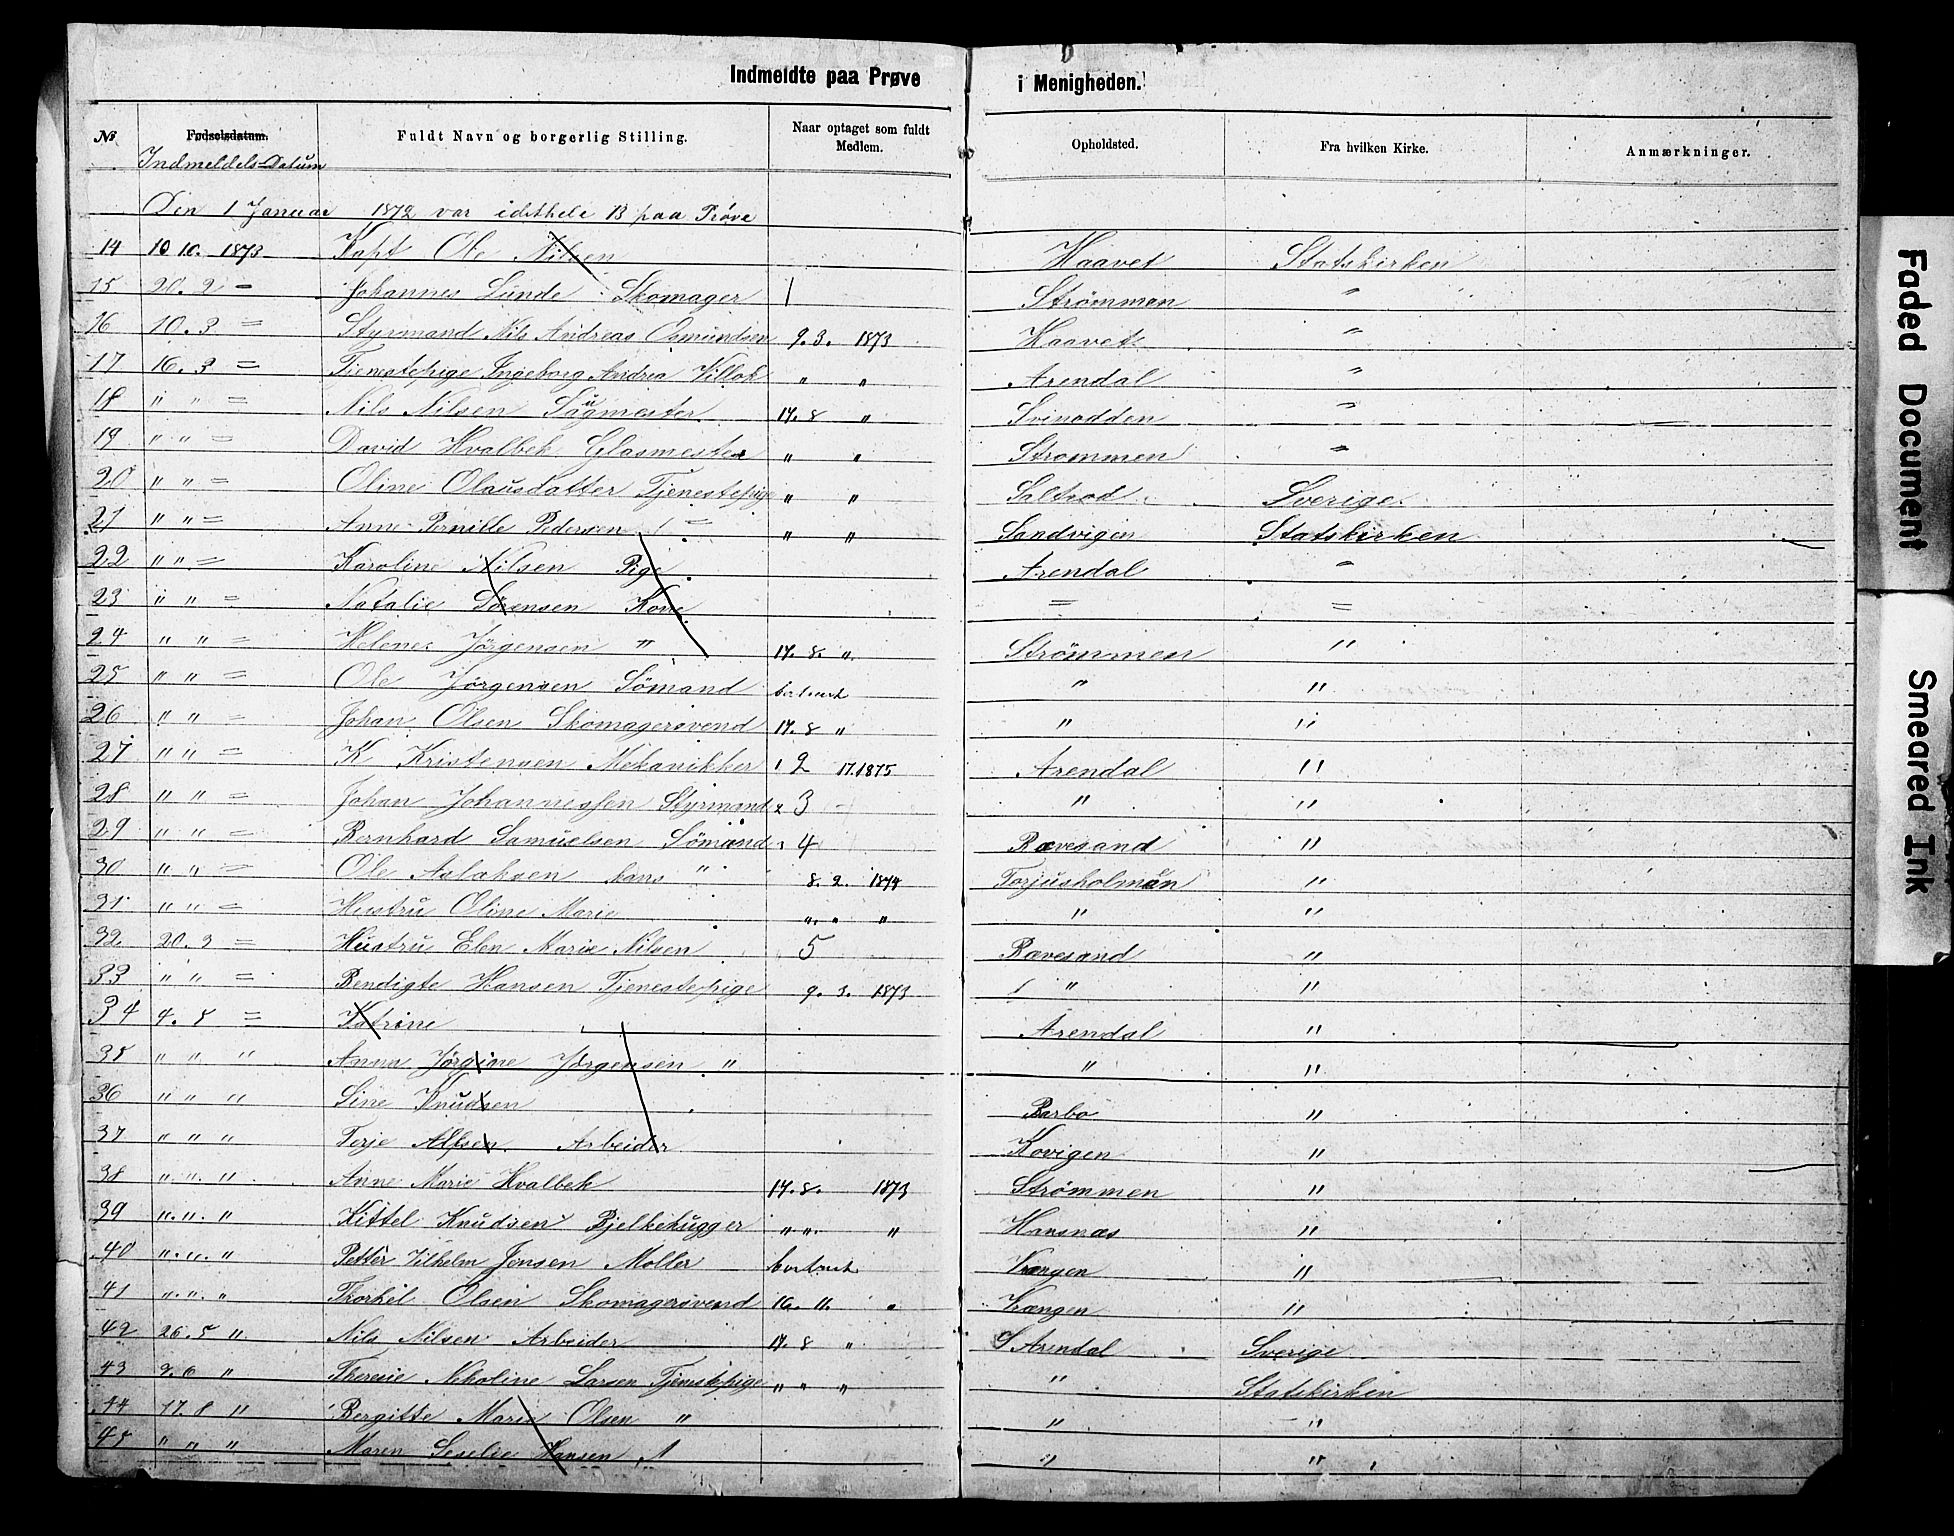 Indmeldte paa Prøve i Menigheden.
No Fødselsdatum. Fuldt Navn og borgerlig Stilling. Naar optaget som fuldt Medlem. Opholdsted. Fra hvilken Kirke. Anmærkninger.
Indmeldels=Datum
Den 1 Januar 1872 var idethele 13 paa Prøve
14 10 10. 1873 Kapt Ole Nilsen Haavet Statskirken
15 20. 2 = Johannes Lunde Skomager 1 Strømmen "
16 10. 3 = Styrmand Nils Andreas Osmundsen 9. 3. 1873 Haavet "
17 16. 3 = Tjenestepige Ingeborg Andrea " " Arendal "
18 " " = Nils Nilsen Sagmester 17. 8 " Svinodden "
19 " " = David Hvalbek Glasmester " " Strømmen "
20 " " = Oline Olausdatter Tjenestepige " " Saltrød Sverige
21 " " = Anne Pernille Pedersen = " " Sandvigen Statskirken
22 " " = Karoline Nilsen Pige Arendal "
23 " " = Natalie Sørensen Kone = =
24 " " = Helene Jørgensen " 17. 8. " Strømmen "
25 " " = Ole Jørgensen Sömand bortreist " "
26 " " = Johan Olsen Skomagersvend 17. 8 " " "
27 " " = K Kristensen Mekanikker 2 17. 1875 Arendal "
28 " " = Johan Johannessen Styrmand 3 " "
29 " " = Bernhard Samuelsen Sömand 4 Rævesand "
30 " " = Ole Aslaksen hans " 8. 2. 1874 Torjusholmen "
31 " " = Hustru Oline Marie " " " " "
32 20. 3 = Hustru Elen Marie Nilsen 5 Rævesand "
33 " " = Bendigte Hansen Tjenestepige 9. 3. 1873 " "
34 4. 5 = Katrine Arendal "
35 " " " Anna Jørgine Jørgensen " " "
36 " " " Sine Knudsen Barbo "
37 " " " Terje Alfsen Arbeider Kovigen "
38 " " " Anne Marie Hvalbek 17. 8. 1873 Strømmen "
39 " " " Kittel Knudsen Bjelkehugger " " " Hansnæs "
40 " " " Petter Vilhelm Jensen Møller bortreist Vrængen "
41 " " " Thorkel Olsen Skomagersvend 16. 11. " Vrængen "
42 26. 5 " Nils Nilsen Arbeider 17. 8 " Arendal Sverige
43 2. 6 " Theresie Nikoline Larsen Tjenstepige " " " " Statskirken
44 17. 8 " Bergitte Marie Olsen " " "
45 " " " Maren Seselie Hansen " "
Faded Document
Smeared Ink